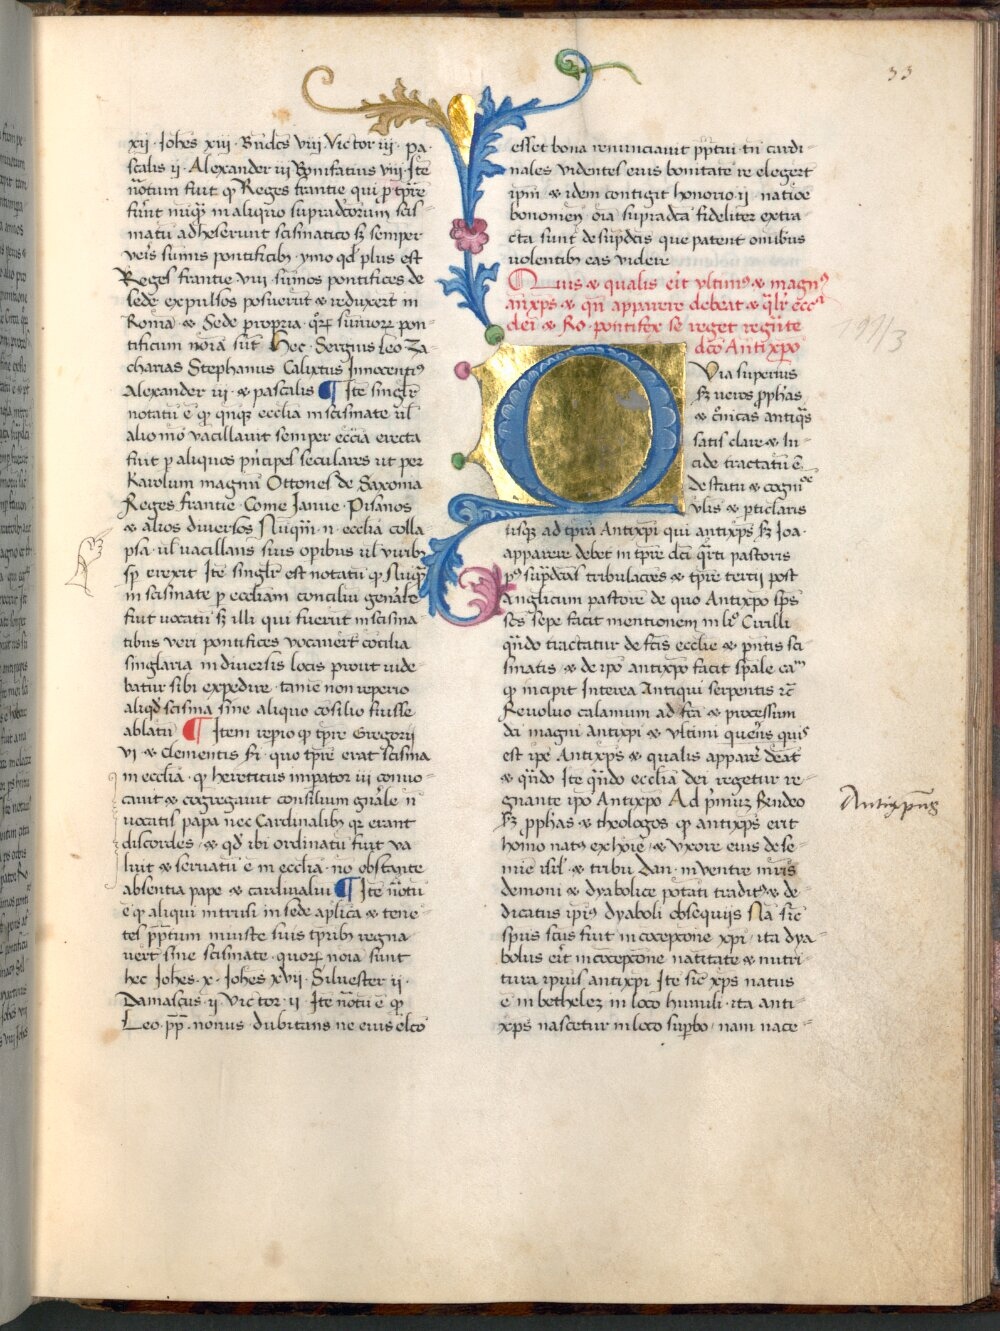 33
xii · Johēs xiii · Bn̄dcs viii · Victor iii · pa-
scalis ii · Alexander iii Bonifatius viii · Itē
notum fuit qͥ Reges frantie qui ꝑ tp̄re
fuerūt in aliquo supradcorum scis-
matū adheserunt scismatico sꝫ semper
veris sumis pontificibꝫ ymo qd plus est
Reges frantie viii sumos pontifices de
sede expulsos posuerūt ⁊ reduxerūt in
Roma ⁊ Sede propria · quoꝝ sumoꝝ pon
tificum noīa sūt hec · Sergius Leo Za-
charias Stephanus Calixtus Innocentiꝰ
Alexander iii · ⁊ pascalis ¶ Itē singlr
notatū ē qͥ ecclia in scismate ul̄
alio mō vacillavit semper eccīa erecta
fuit ꝑ aliquos pn̄cipes seculares ut per
Karolum magnū Ottones de Saxonia
Reges frantie · Come Janue · Pisanos
⁊ alios diversos Nuqm̄ · n · ecclia colla-
psa ul̄ vacillans suis opibus ul̄ viribꝫ
sp erexit Itē singlr est notatū qͥ Nuqͣ
in scismate ꝑ eccliam conciliū genāle
fuit vocatū sꝫ illi qui fuerūt in scisma
tibus veri pontifices vocaverūt cōcilia
singlaria in diversis locis prout vide-
batur sibi expedire · tamē non reperio
aliqd scisma sine aliquo cōsilio fuisse
ablatū ¶ Item repio qͥ tp̄re Gregorii
vi · ⁊ Clementis quo tp̄re erat scisma
in ecclia · qͥ hereticus īmpator iii convo-
cavit ⁊ cōgregavit consilium gnāle n̄
vocatis papa nec Cardinalibꝫ qͥ erant
discordes · ⁊ qd ibi ordinatū fuit va
luit ⁊ servatū ē in ecclia · nō obstante
absentia pape ⁊ cardinaliū ¶ Itē notū
ē qͥ aliqui intrusi in sede aplica ⁊ tene-
tes pp̄tum iniuste suis tp̄ribꝫ regna-
verūt sine scismate · quoꝝ noīa sunt
hec Johēs · x · Johēs xvii · Silvester ii ·
Damascus · ii · Victor · ii · Itē notū ē qͥ
Leo · pp̄ · nonus · dubitans ne eius elcō
esset bona renunciavit pp̄tui · tn̄ cardi-
nales videntes eius bonitatē re elegerūt
ipm̄ · ⁊ idem contigit honorio · ii · natiōe
bonomen̄ oīa supradca fideliter extra-
cta sunt de supdcis que patent omībus
volentibꝫ eas videre
Quis ⁊ qualis erit vltimꝰ ⁊ magnꝰ
an̄xp̄s ⁊ qn̄ apparere debeat ⁊ qͣlr ecc
dei ⁊ Ro · pontifex se reget regnāte
dcō Antixp̄o
97/3
Quia superius
sꝫ veros ꝓphas
⁊ cronicas antiqͣs
satis clare ⁊ lu-
cide tractatū ē
de statu ⁊ cogni
vlis ⁊ pticlaris
usqꝫ ad tp̄ra Antixp̄i qui antixp̄s sꝫ Joa·
apparere debet in tp̄re dci qͣrti pastoris
pꝰ supdcas tribulacōes ⁊ tp̄re tertii post
Anglicum pastorē de quo Antixp̄o sp̄s
scs sepe facit mentionem in lͦ Cirilli
quādo tractatur de fcis ecclie ⁊ pn̄tis sci
smatis · ⁊ de ipo antixp̄o facit sp̄ale caᵐ
qͥ incipit Interea Antiqui serpentis ⁊c̄
Revoluo calamum ad fca ⁊ processum
dci magni Antixp̄i ⁊ vltimi querēs quis
est ip̄e Antixp̄s ⁊ qualis apparē debeat
⁊ quādo Itē quādo ecclia dei regetur re-
gnante ipo Antixp̄o Ad p̄muꝫ Rn̄deo
sꝫ ꝓphas ⁊ theologos qͥ antixp̄s erit
homo natꝰ ex hoīe · ⁊ vxore eius de se-
mīe isrl̄ · ⁊ tribu Dan · in ventre mr̄is
demoni ⁊ dyabolice pōtati traditꝰ ⁊ de-
dicatus ipīꝰ dyaboli obsequijs Na sic
spūs scūs fuit in cōcepcōne xp̄i · ita dya-
bolus erit in cōcepcōne nativitate ⁊ nutri-
tura ipīus antixp̄i Itē sic xp̄s natus
ē in betheleꝫ in loco humili · ita anti-
xp̄s nascetur in loco supbo · nam nace-
Antixp̄us